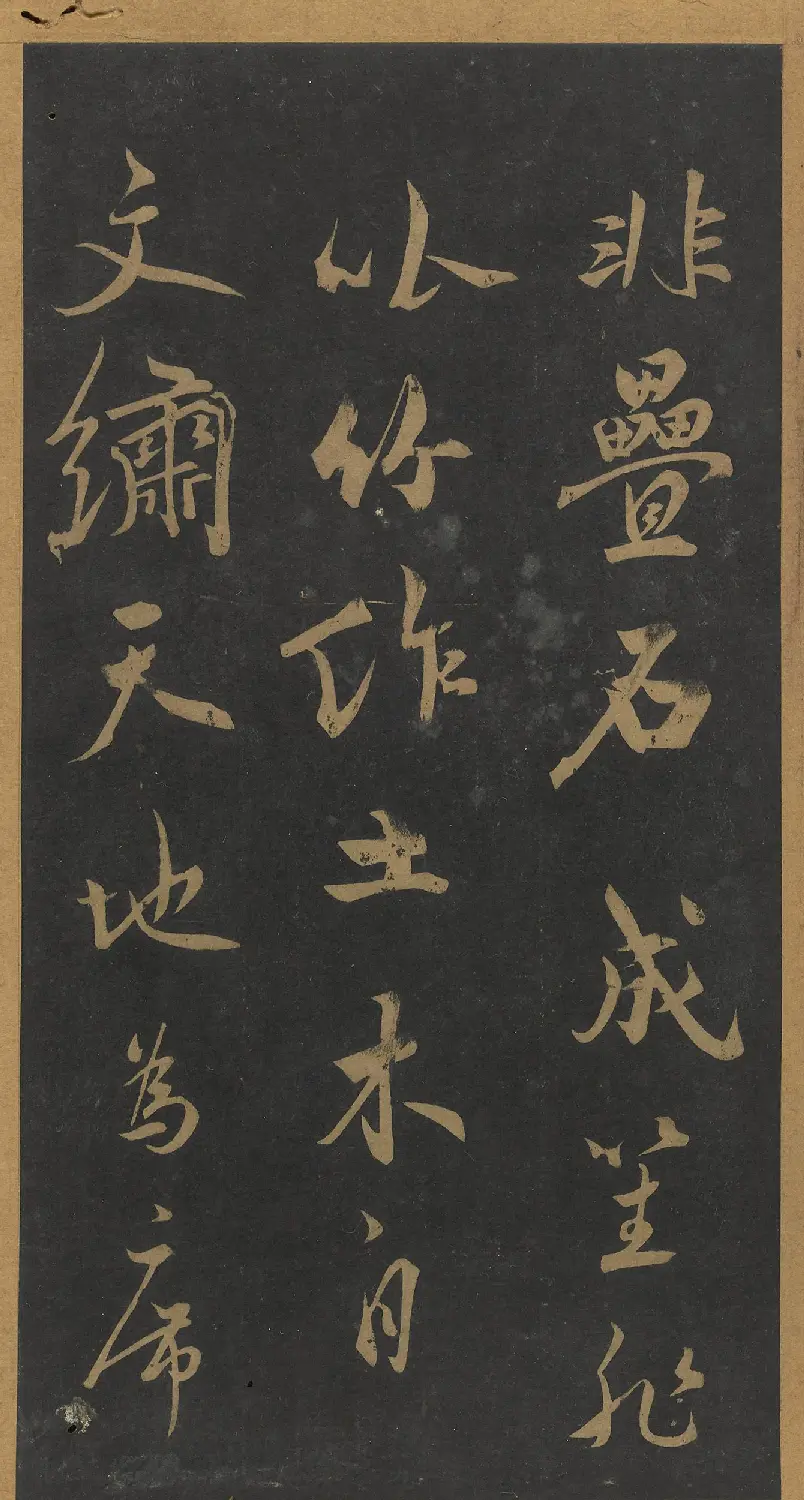 非疊石成
以竹作土木自
文繡天地為席